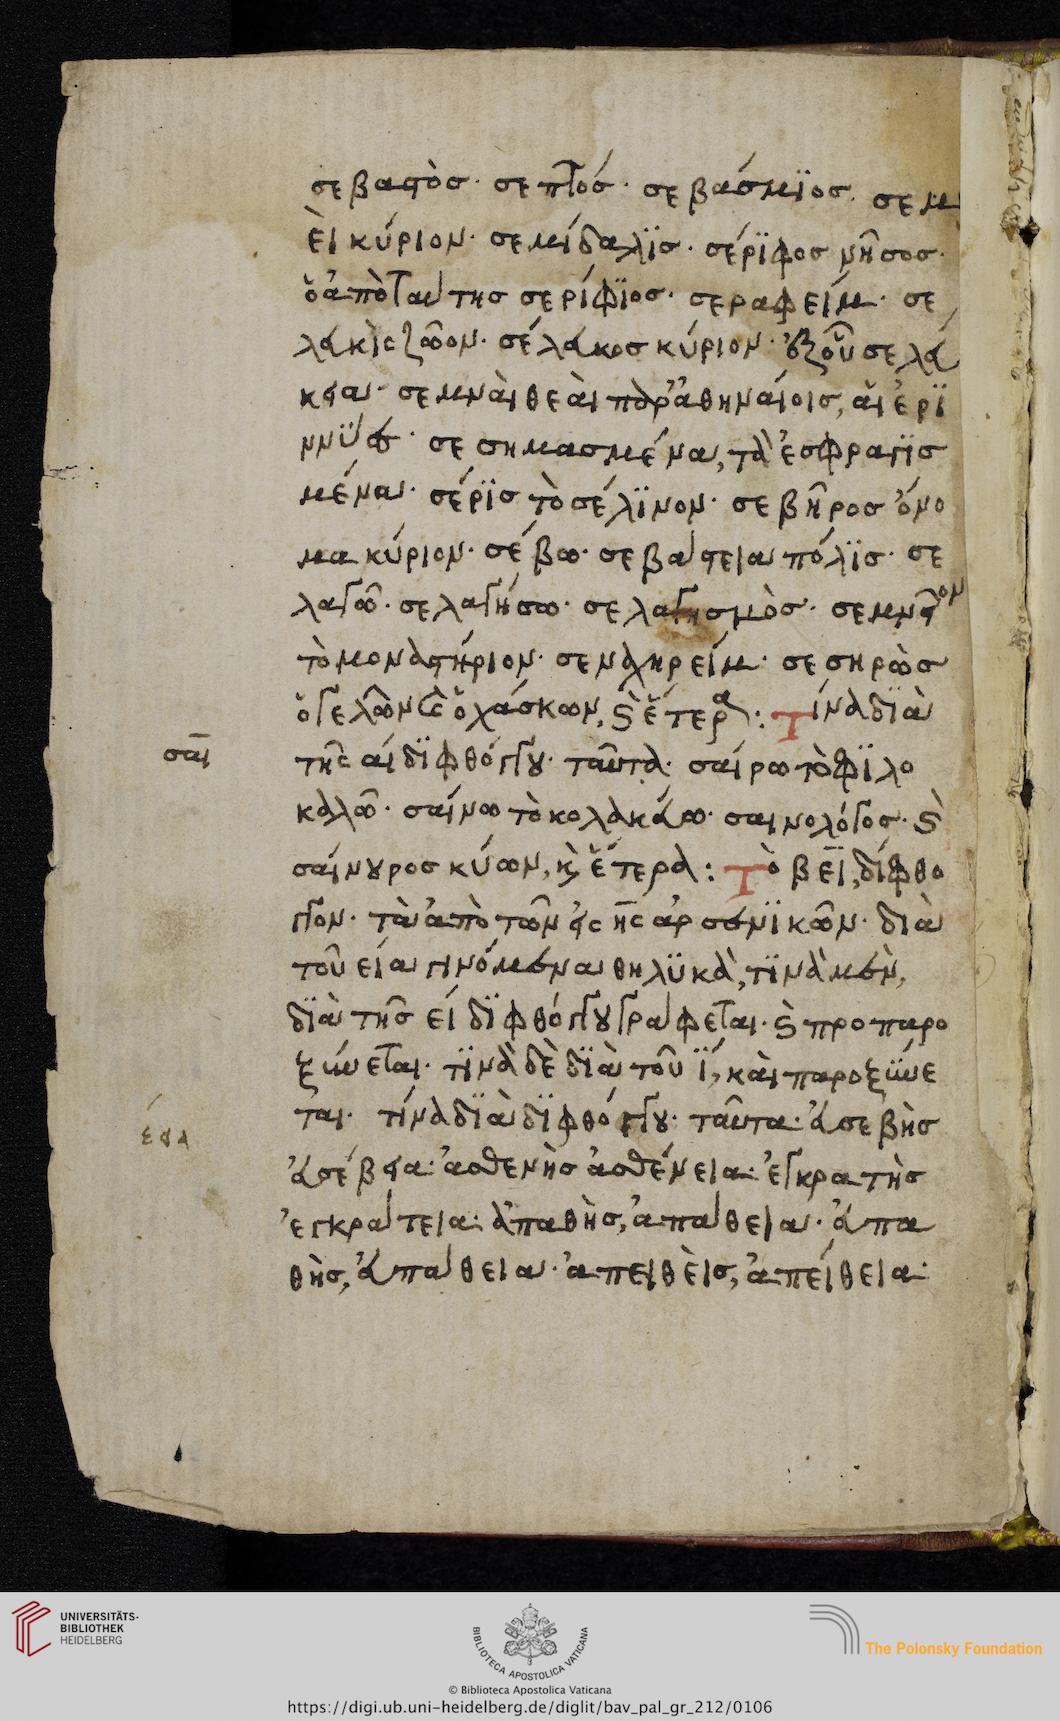 σεβαστὸσ· σεπτόσ· σεβάσμϊοσ. σεμ
ὲι κύριον· σεμίδαλϊσ· σέρϊφοσ νῆσοσ·
ὁ ἀπὸ ταύτησ σερίφϊοσ· σεραφείμ· σε
λάκὶς ζῶον· σέλακοσ κύριον·
σεμναὶ θεαὶ παρ ἀθηναίοισ, αἱ ἐρϊ
ννύες· σεσημασμένα, τὰ ἐσφραγϊσ
μένα· σέρϊσ τὸ σέλϊνον· σεβῆροσ ὄνο
μα κύριον· σέβω· σεβάστεια πόλϊσ· σε
λαγῶ· σελαγήσω· σελαγησμὸσ· σεμνεῖον
τὸ μοναστήριον· σεναχηρείμ· σεσηρὼσ
ὁ γελῶν καὶ ὁ χάσκων, καὶ ἕτερα: Τίνα δϊὰ
σαι
τῆς αι δϊφθόγγου· ταῦτα· σαίρω τὸ φϊλο
καλῶ· σαίνω τὸ κολακεύω· σαινολόγοσ· καὶ
σαίνουροσ κύων, καὶ ἕτερα: Τὸ βεϊ, δίφθο
γγον· τὰ ἀπὸ τῶν εἰς ης ἀρσενϊκῶν· διὰ
τοῦ εία γινόμενα θηλϋκὰ, τϊνὰ μὲν,
δϊὰ τῆσ ει δϊφθόγγου γράφεται· καὶ προπαρο
ξύνεται· τϊνὰ δὲ δϊὰ τοῦ ϊ, καὶ παροξύνε
ται· τίνα δϊὰ δϊφθόγγου· ταῦτα· ἀσεβὴσ
ἀσέβεια· ἀσθενὴσ ἀσθένεια· ἐγκρατὴσ
ἐγκράτεια· ἀπαθὴσ, ἀπάθεια· ἀπα
θὴσ, ἀπάθεια· ἀπειθὲισ, ἀπείθεια·
UNIVERSITÄTS-
BIBLIOTHEK
HEIDELBERG
BIBLIOTECA APOSTOLICA VATICANA
The Polonsky Foundation
© Biblioteca Apostolica Vaticana
https://digi.ub.uni-heidelberg.de/diglit/bav_pal_gr_212/0106